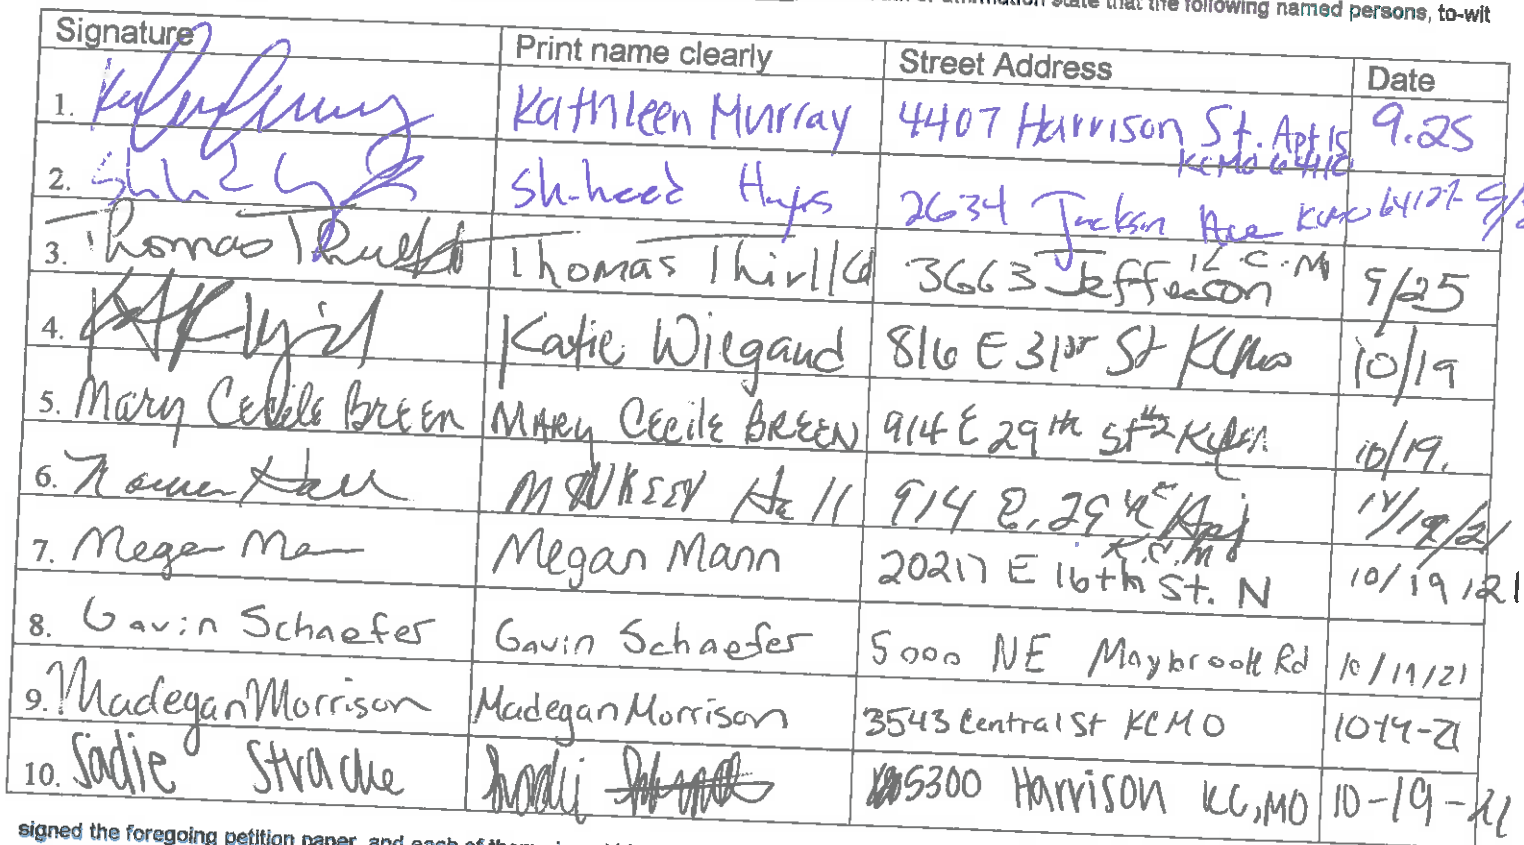 state that the following named persons, to-wit
Signature Print name clearly Street Address Date
1. Kathleen Murray 4407 Harrison St. Apt 15 9.25
KCMO 64110
2. Hays 2634 Jackson Ave KCMO 64127
3. Thomas Thomas 3663 Jefferson K.C. Mo 9/25
4. Katie Wiegand 816 E 31st St KCMO 10/19
5. Mary Cecile Breen MARY CECILE BREEN 914 E 29th St #2 10/19.
6. Hall Hall 914 E. 29th
K.C.Mo
7. Megan Mann Megan Mann 20217 E 16th St. N 10/19/21
8. Gavin Schaefer Gavin Schaefer 5000 NE Maybrook Rd 10/19/21
9. Madegan Morrison Madegan Morrison 3543 Central St KCMO 10-19-21
10. Sadie Strache 5300 Harrison KC, MO 10-19-21
signed the foregoing petition paper, and each of them